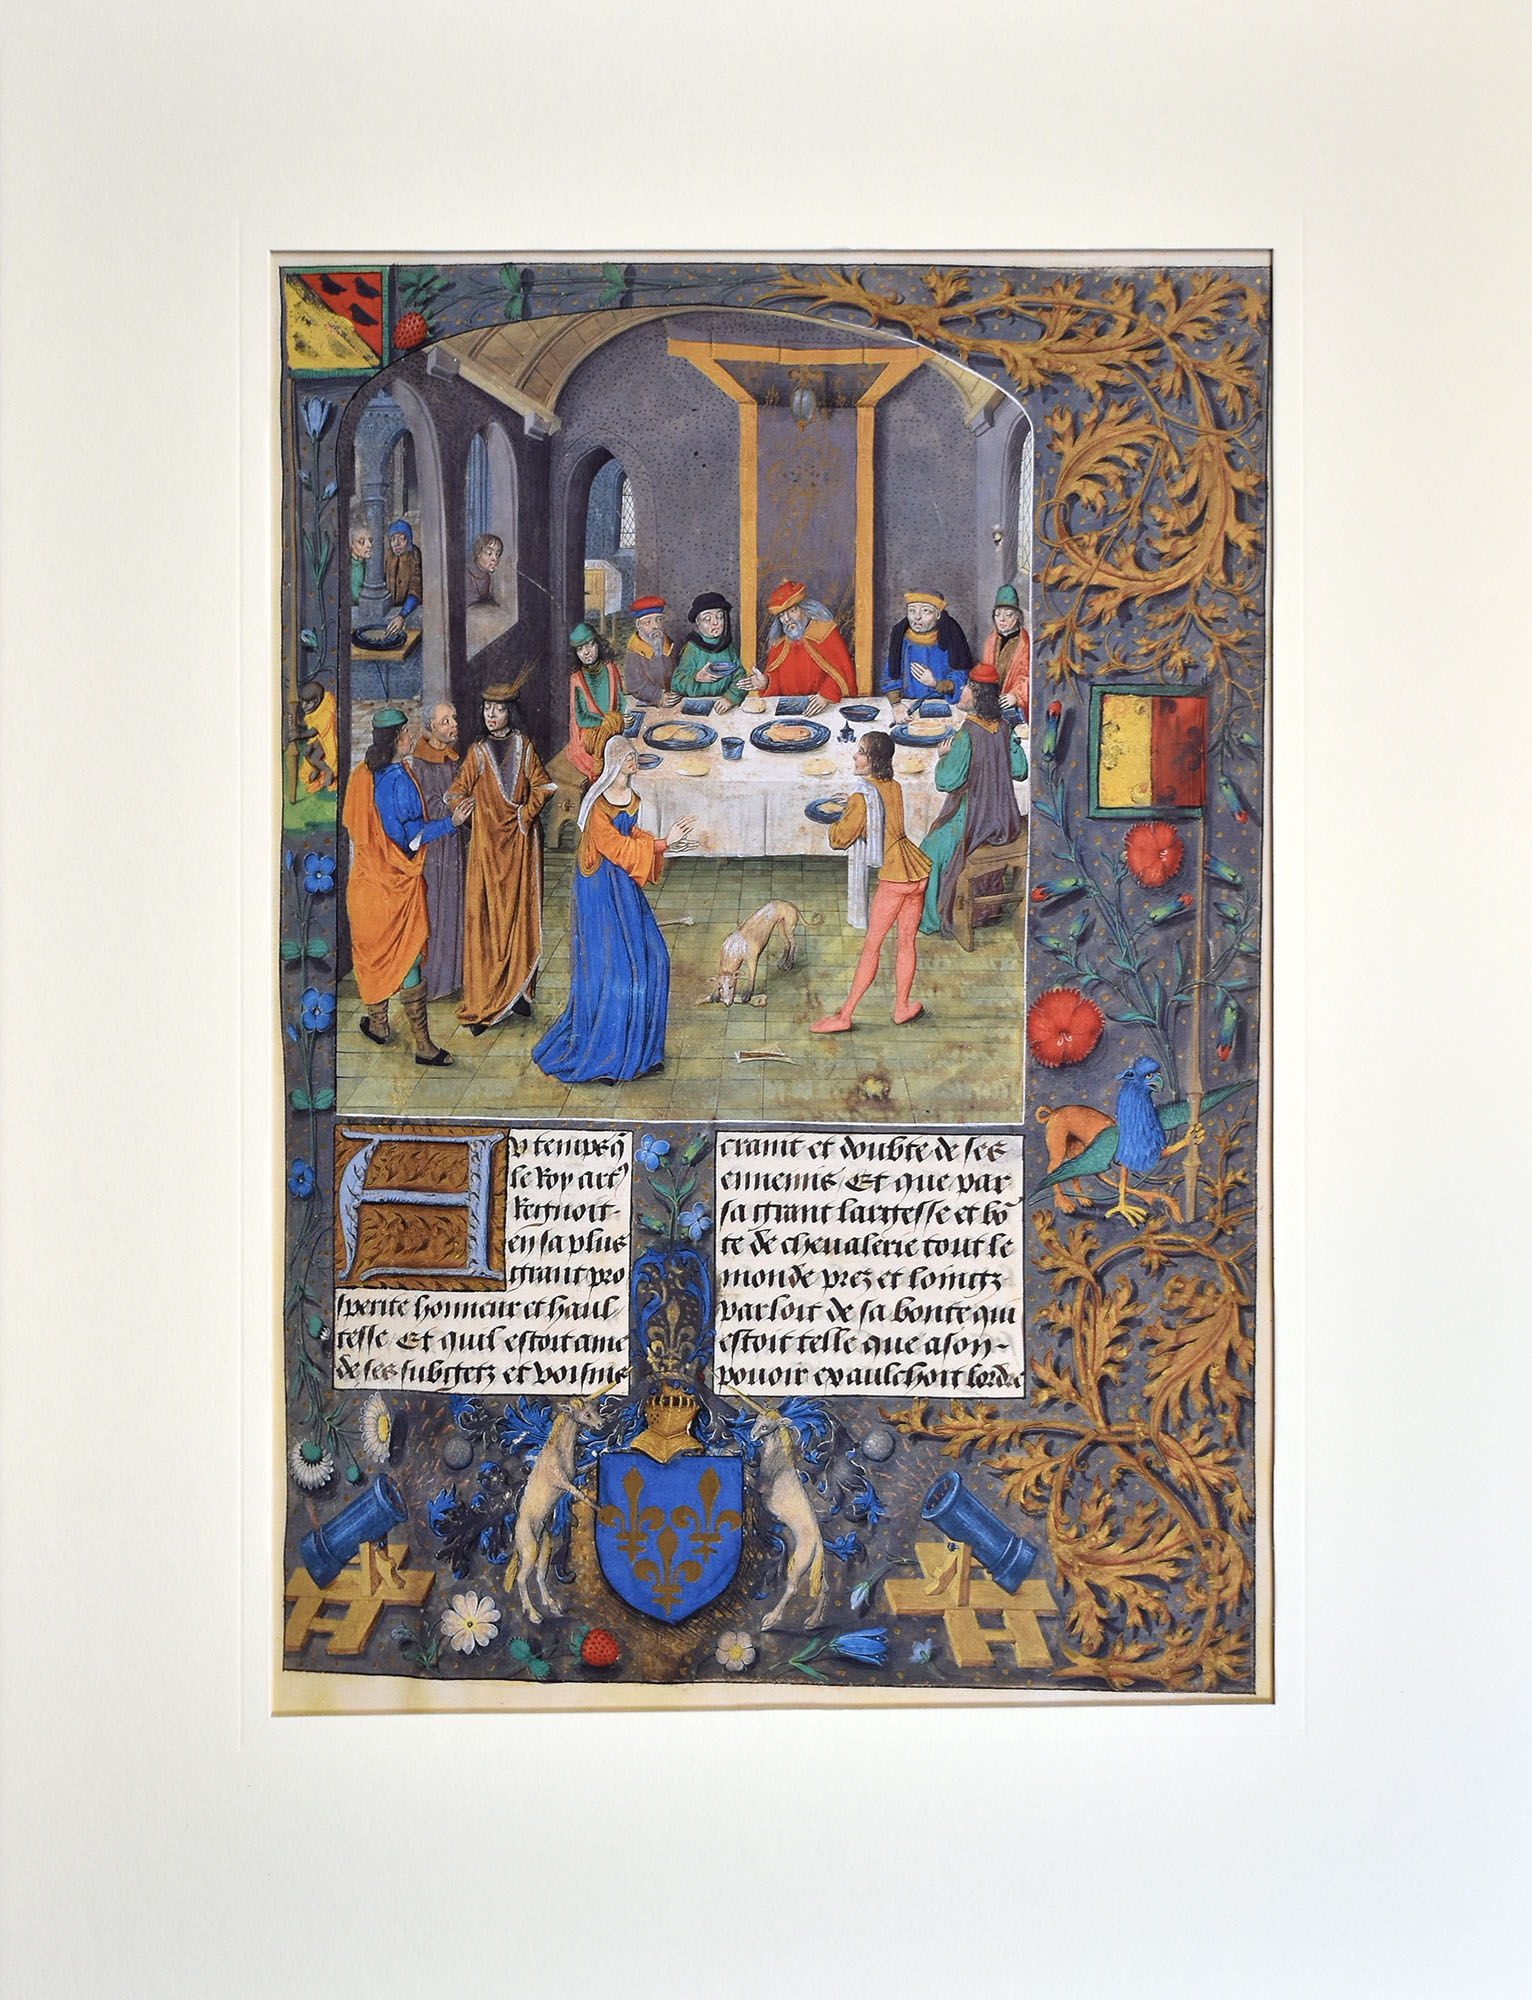 Au temps q̄
le Roy art᷒
Regnoit
en sa plus
grant pro
sperite honneur et haul
tesse Et quil estoit ame
de ses subgetz et voisins
craint et doubte de ses
ennemis Et que par
sa grant largesse et bō
te de cheualerie tout le
monde prez et loingz
parloit de sa bonte qui
estoit telle que a son
pouoir epaulchoit lordre